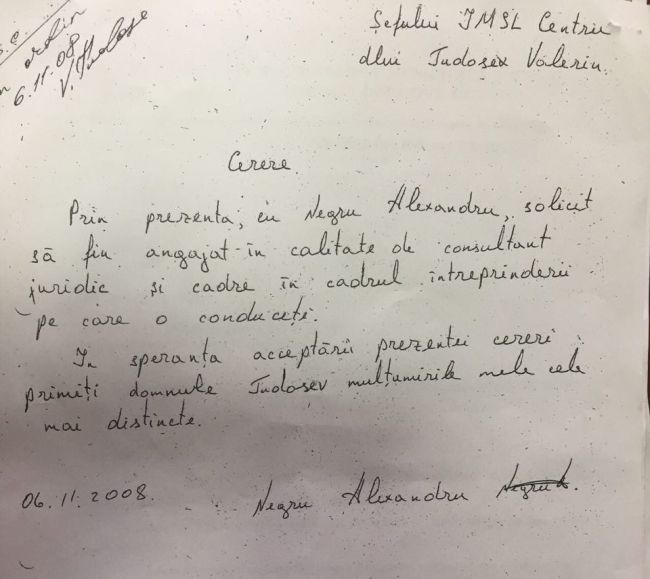 ordin
6.11.08
Șefului ÎMSL Centru
dlui Tudosev Valeriu.
Cerere.
Prin prezenta, eu Negru Alexandru, solicit
să fiu angajat în calitate de consultant
juridic și cadre în cadrul întreprinderii
pe care o conduceți.
În speranța acceptării prezentei cereri
primiți domnule Tudosev mulțumirile mele cele
mai distincte.
06.11.2008.
Negru Alexandru Negru A.